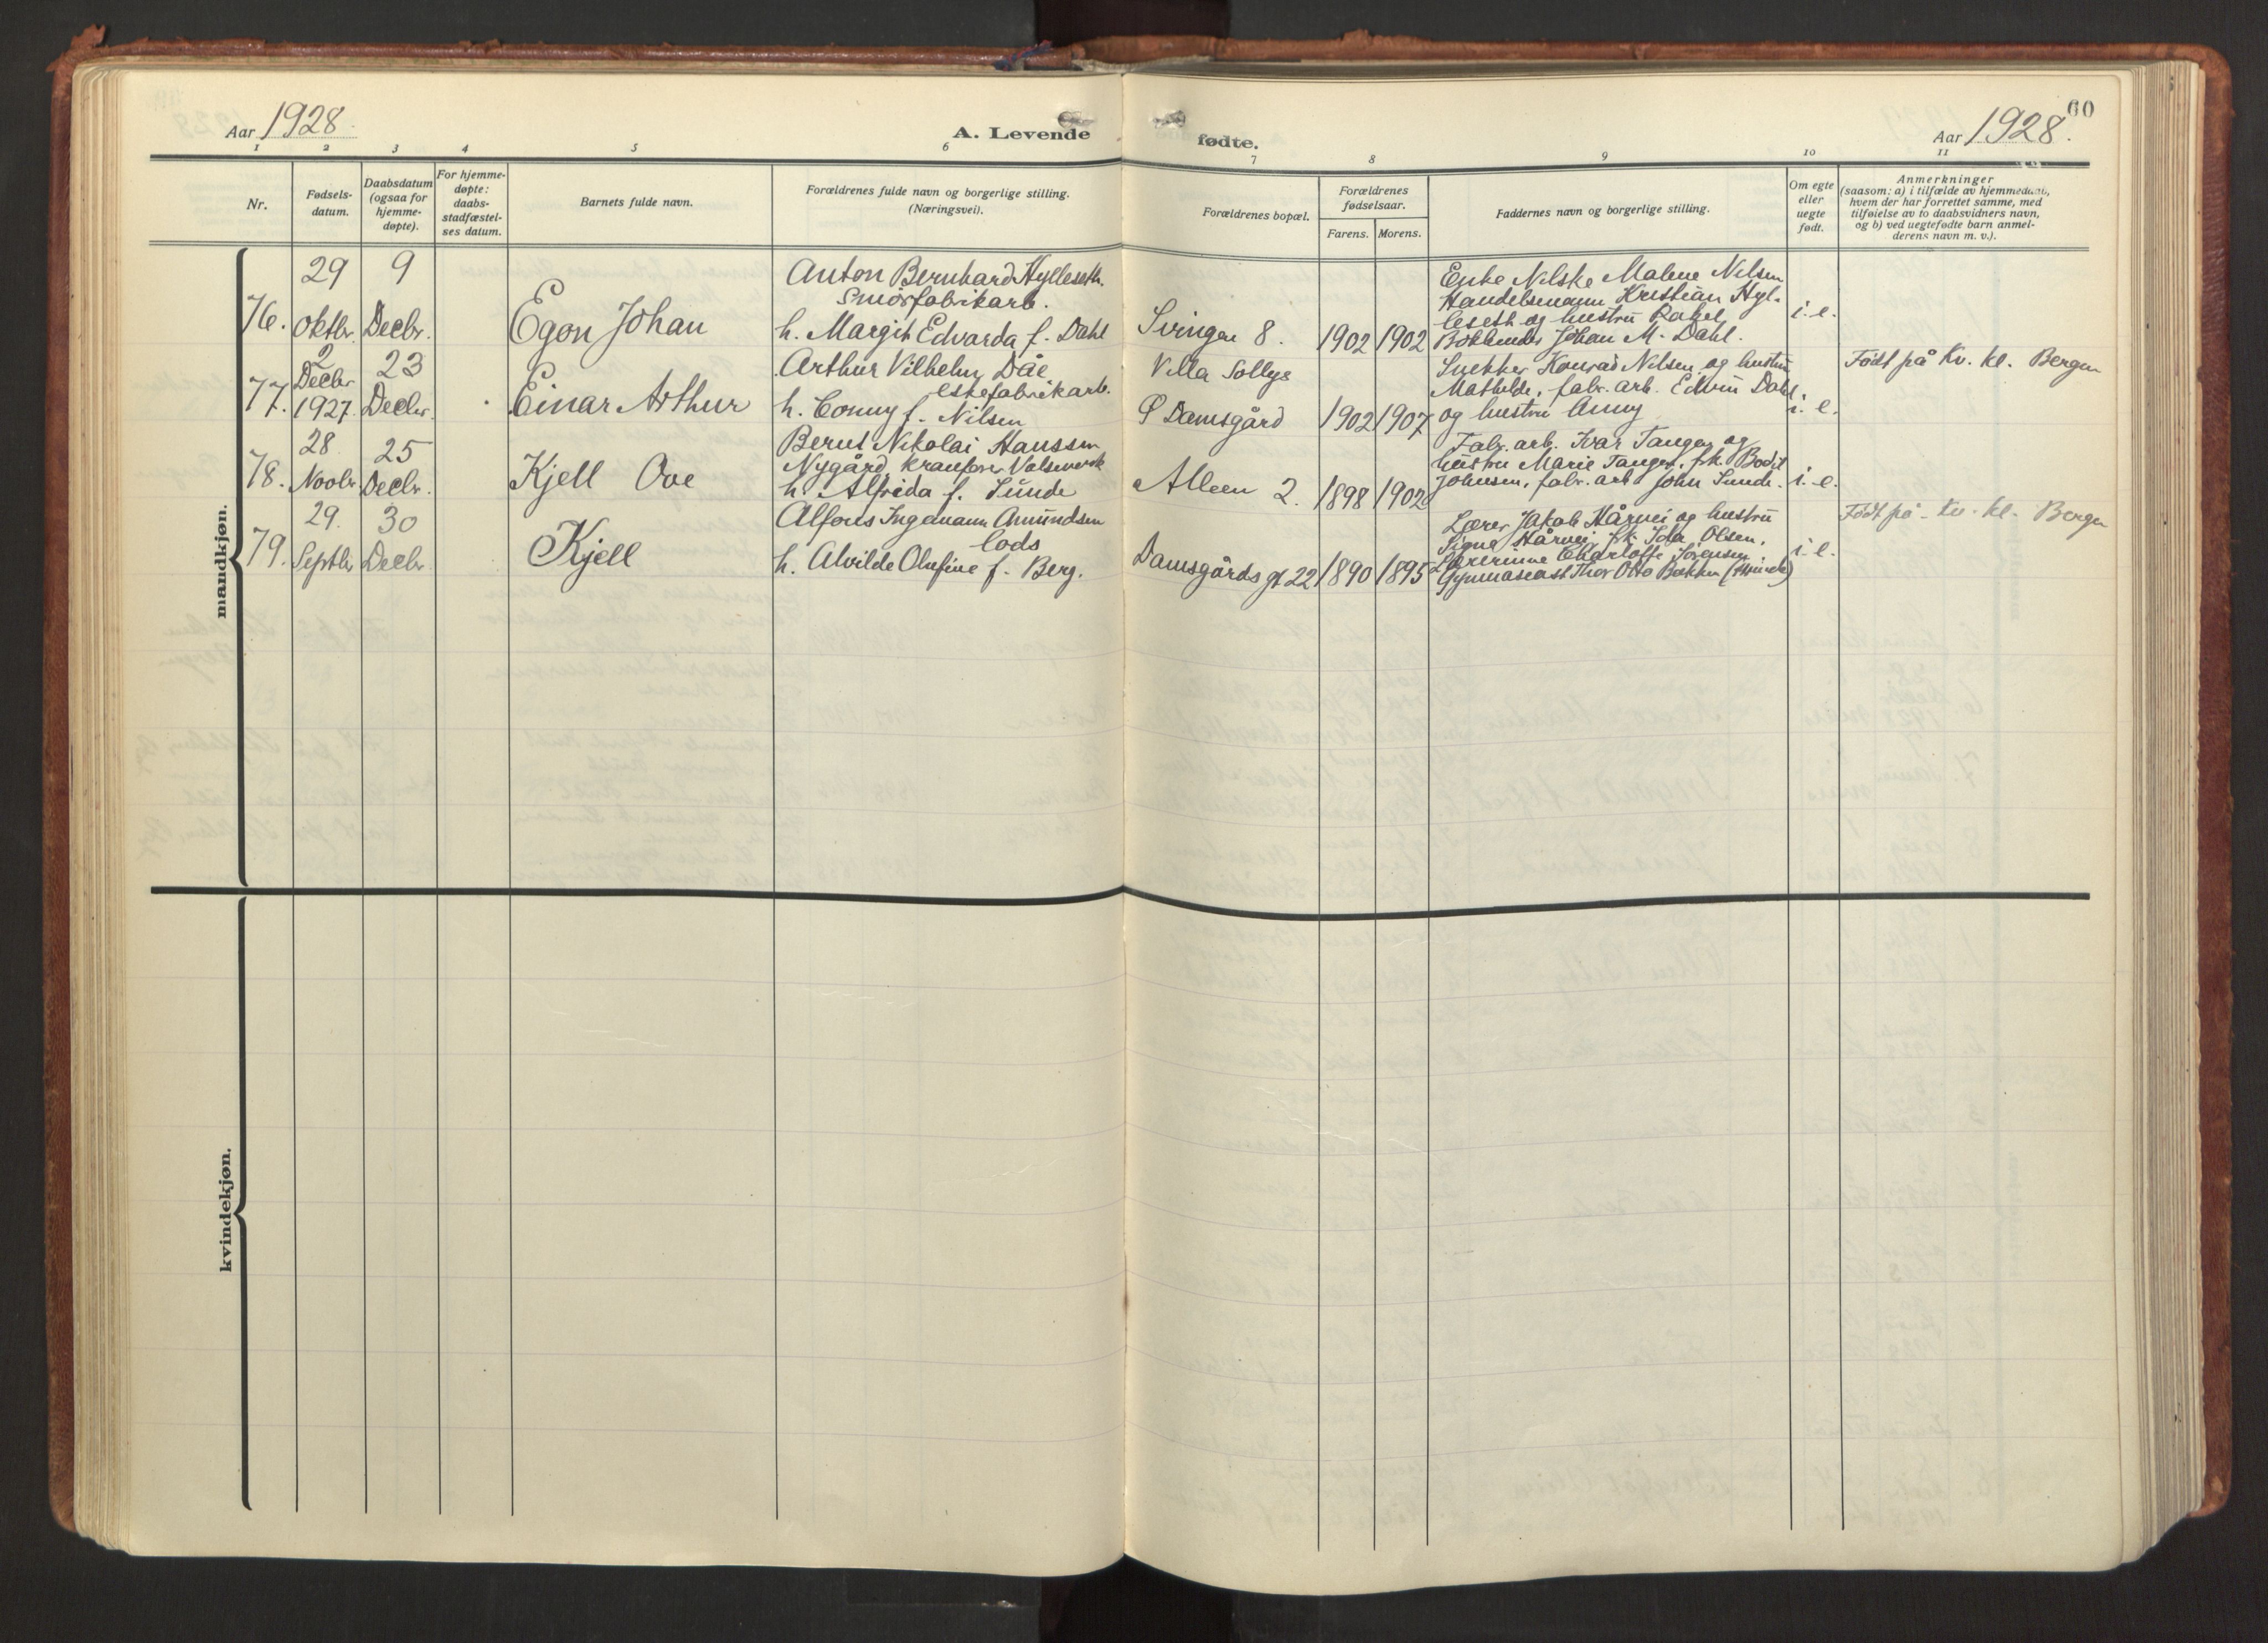 60
Aar 1928.
A. Levende fødte.
Aar 1928.
1 2 3 4 5 6 7 8 9 10 11
Nr.
Fødsels-
datum.
Daabsdatum
(ogsaa for
hjemme-
døpte).
For hjemme-
døpte:
daabs-
stadfæstel-
ses datum.
Barnets fulde navn.
Forældrenes fulde navn og borgerlige stilling.
(Næringsvei).
Forældrenes bopæl.
Forældrenes
fødselsaar.
Farens. Morens.
Faddernes navn og borgerlige stilling.
Om egte
eller
uegte
født.
Anmerkninger
(saasom: a) i tilfælde av hjemmedaab,
hvem der har forrettet samme, med
tilføielse av to daabsvidners navn,
og b) ved uegtefødte barn anmel-
derens navn m. v.).
mandkjøn.
76.
29
Oktbr.
9
Decbr.
Egon Johan
Anton Bernhard Hylleseth.
Smørfabrikarb.
h. Margit Edvarda f. Dahl
Svingen 8.
1902 1902
Enke Nilske Malene Nilsen
Handelsmann Kristian Hyl-
leseth og hustru Rakel
Johan M. Dahl.
i. e.
77.
2
Decbr
1927.
23
Decbr.
Einar Arthur
Arthur Vilhelm Dåe
eskefabrikarb.
h. Conny f. Nilsen
Villa Sollye
Damsgård
1902 1907
Snekker Konrad Nilsen og hustru
Mathilde, fabr. arb. Edvin Dahl
og hustru Anny
i. e.
Født på Kv. kl. Bergen
78.
28
Novbr.
25
Decbr.
Kjell Ove
Bernt Nikolai Hanssen
Nygård, kranfører Valseverk
h. Alfrida f. Sunde
Alleen 2.
1898 1902
Fabr. arb. Ivar Tangen og
hustru Marie Tangen, frk. Bodil
Johnsen, fabr. arb John Sunde.
i. e.
79.
29.
Septbr
30
Decbr.
Kjell
Alfons Ingemann Amundsen
Lods
h. Alvilde Olufine f. Berg.
Damsgårds gt 22
1890 1895
Lærer Jakob Hårvei og hustru
Signe Hårvei, frk. Ida Olsen,
Lærerinne Charlotte Sørensen
Gymnasiast Thor Otto Bakken
i. e.
Født på kv. kl. Bergen
kvindekjøn.